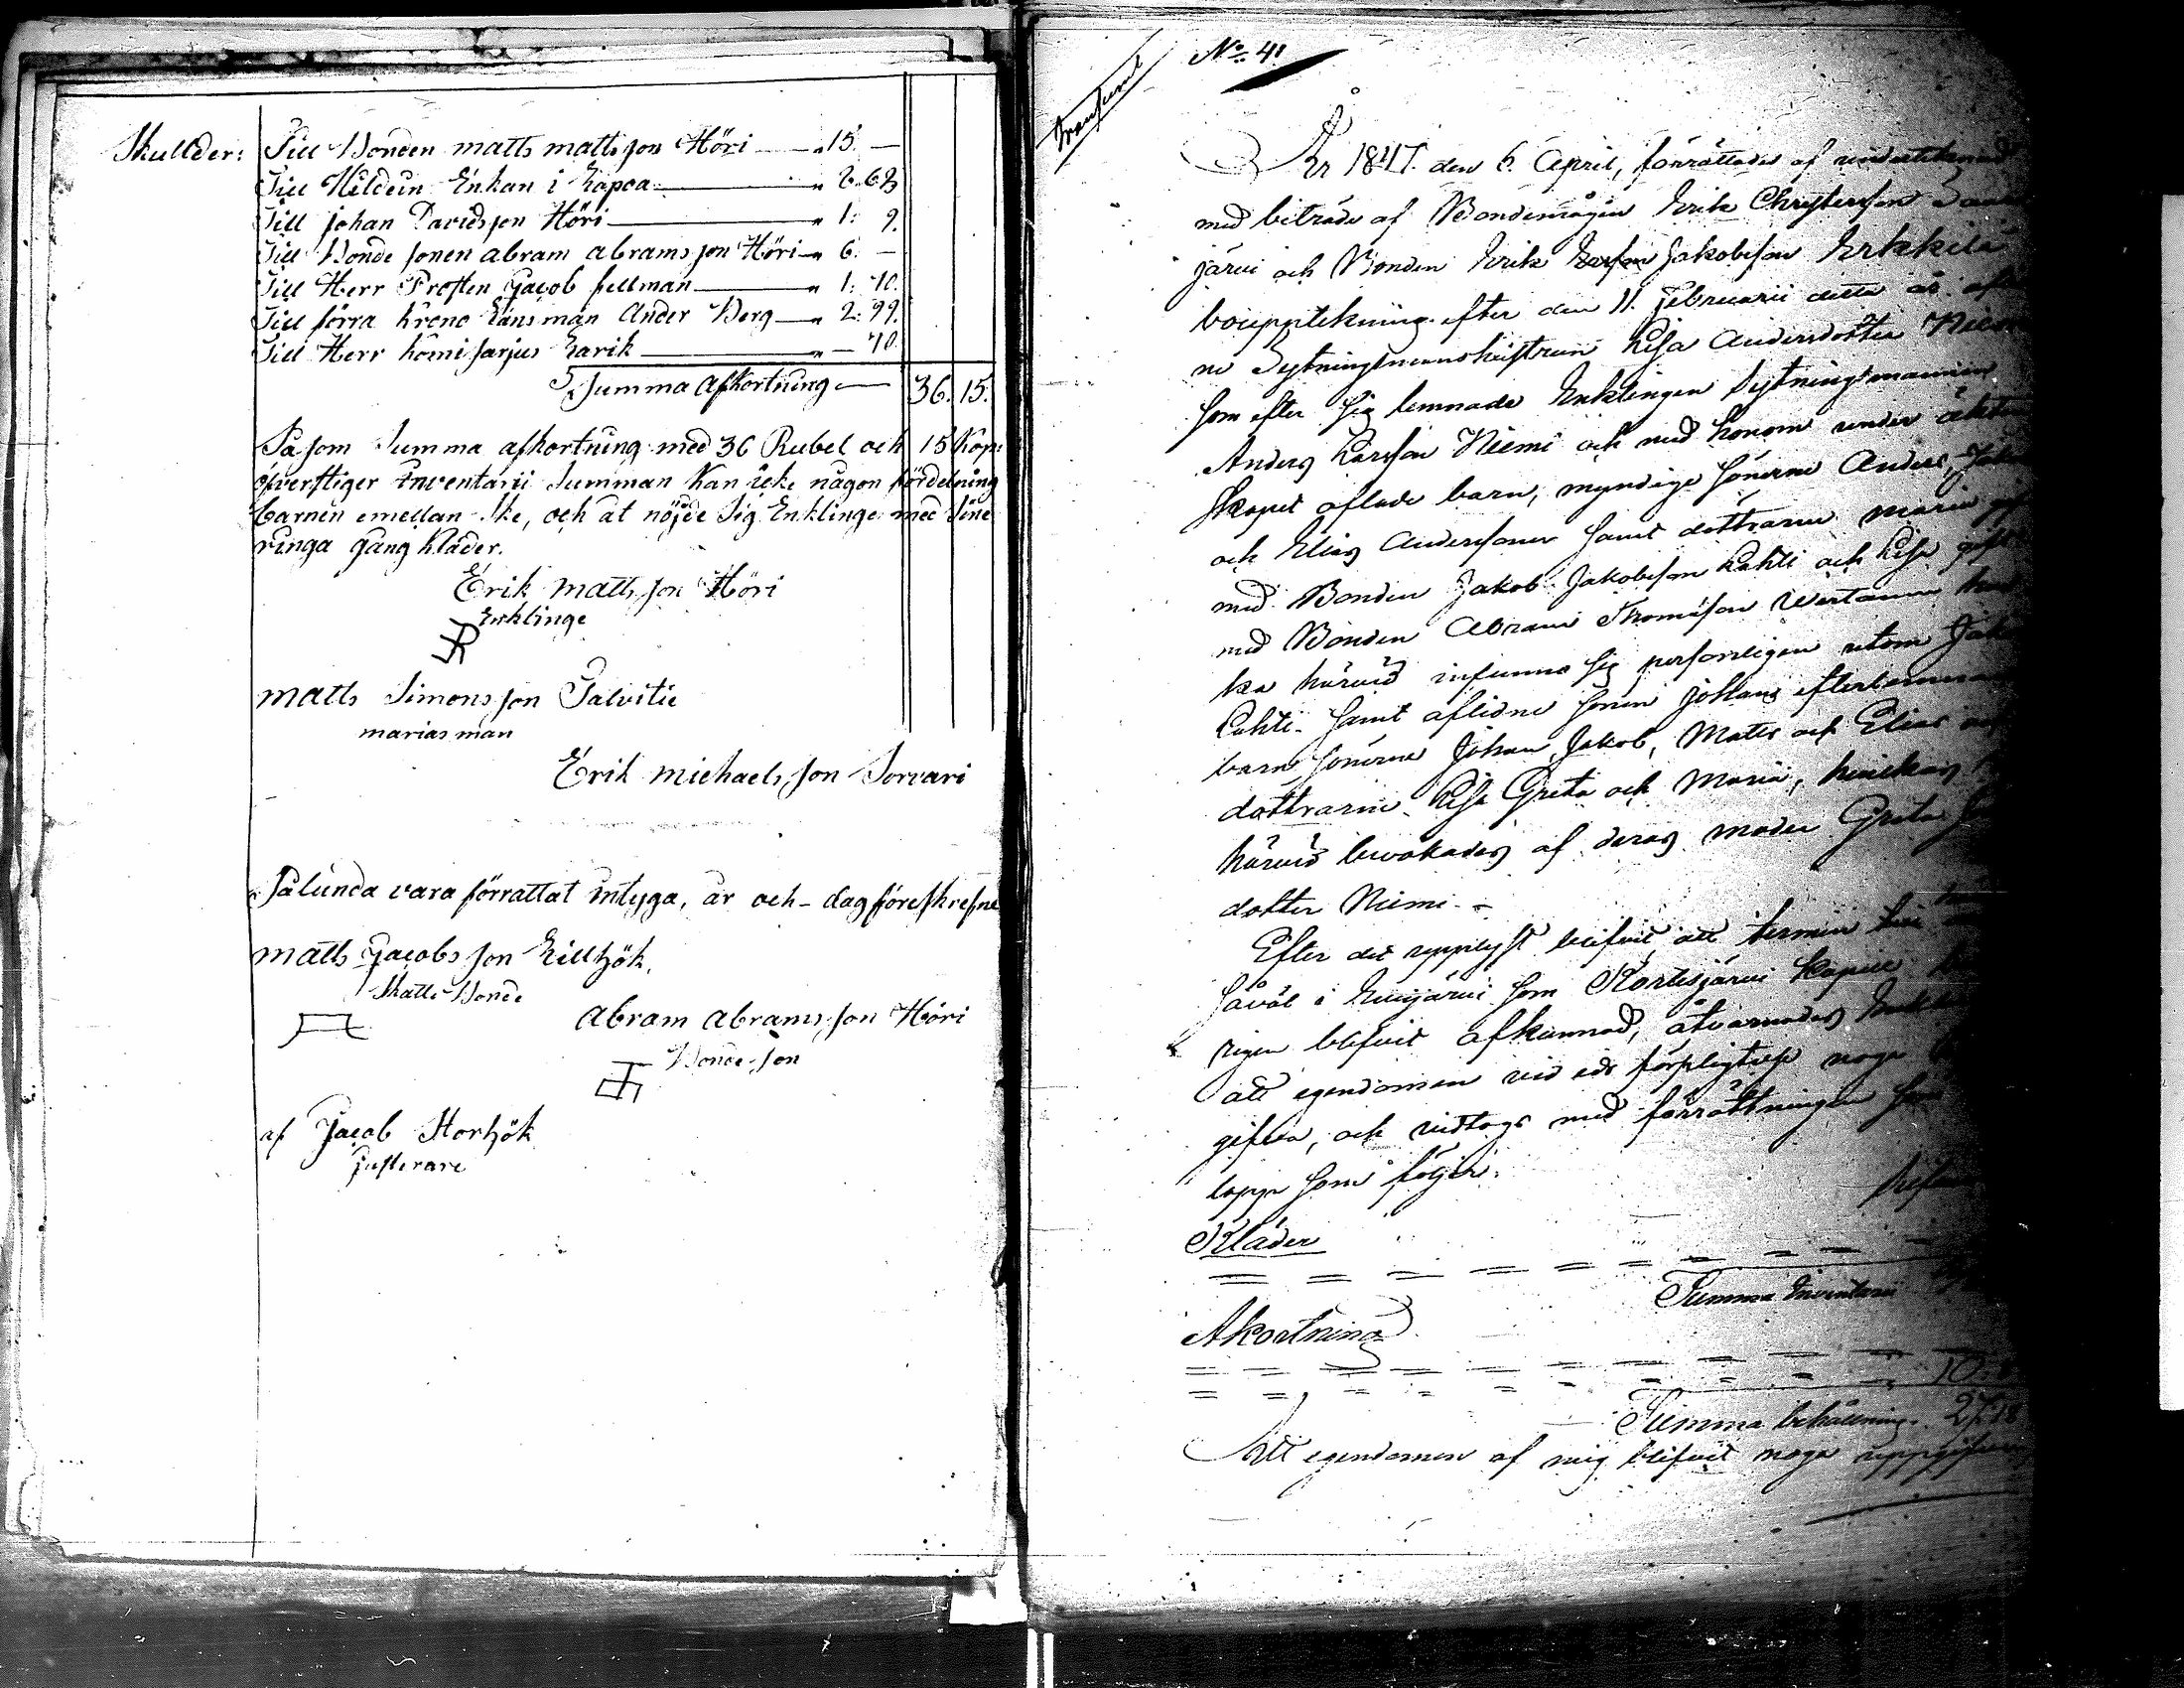 Skullder: Till Bonden matts mattsson Höri — " 15. —
Till Hildein Enkan i Lapoa — " 2. 62
Till Johan Davidsson Höri — " 1: 9.
Till Bonde sonen abram abramsson Höri — " 6. —
Till Herr Prosten Jacob fellman — " 1: 70.
Till förra krono Länsman Ander Berg — " 2: 99.
Till Herr komisarjus Earik — " — 70.
Summa afkortning — 36. 15.
Såsom Summa afkortning med 36 Rubel och 15 Kop:
öfverstiger Inventarii Summan Kan icke någon fördelning
barnen emellan ske, och åt nöjde Sig Enklinge med Sine
ringa gång Kläder.
Erik mattsson Höri
Enklinge
matts Simonsson Palvitie
marias man
Erik michaelsson Sorvari
Sålunda vara förrattat intyga, år och dagföreskrefne
matts Jacobsson Lillhök,
Skatte Bonde
abram abramsson Höri
Bonde son
af Jacob Storhök
justerare
No 41
Transsumt
År 1847. den 6. April, förrättades af undertecknad
med biträde af Bondemågen Erik Christersson
järvi och Bonden Erik Jakobsson Erkkilä
bouppteckning efter den 11. Februarii detta år afl
ne Sytningsmanshustrun Lisa Andersdotter Niemi
som efter sig lemnade Enklingen Sytningsmannen
Anders Larsson Niemi och med honom under äkten
skapet aflade barn, myndige sönerne Anders,
och Elias Anderssoner samt döttrarne Maria gift
med Bonden Jakob Jakobsson Lahti och Lisa gift
med Bonden Abram Thomasson Wirtanen
ka härvid infunno sig personligen utom Jakob
Lahti. Samt aflidne sonen Johans efterlemnade
barn sönerne Johan, Jakob, Matts och Elias
döttrarne Lisa Greta och Maria, hvilkas
härvid bevakades af deras moder Greta
dotter Niemi. —
Efter det upplyst blifvit att termin
såväl i Evijärvi som Kortesjärvi Kapell
rigen blifvit afkunnad, åtvarnades
att egendomen vid eds förpligtelse noga
gifva, och vidtogs med förrättningen
lopp som följer:
Kläder
Summa Inventarii
Akortning
10.
Summa behållning. 27.18
Att egendomen af mig blifvit noga uppgifven